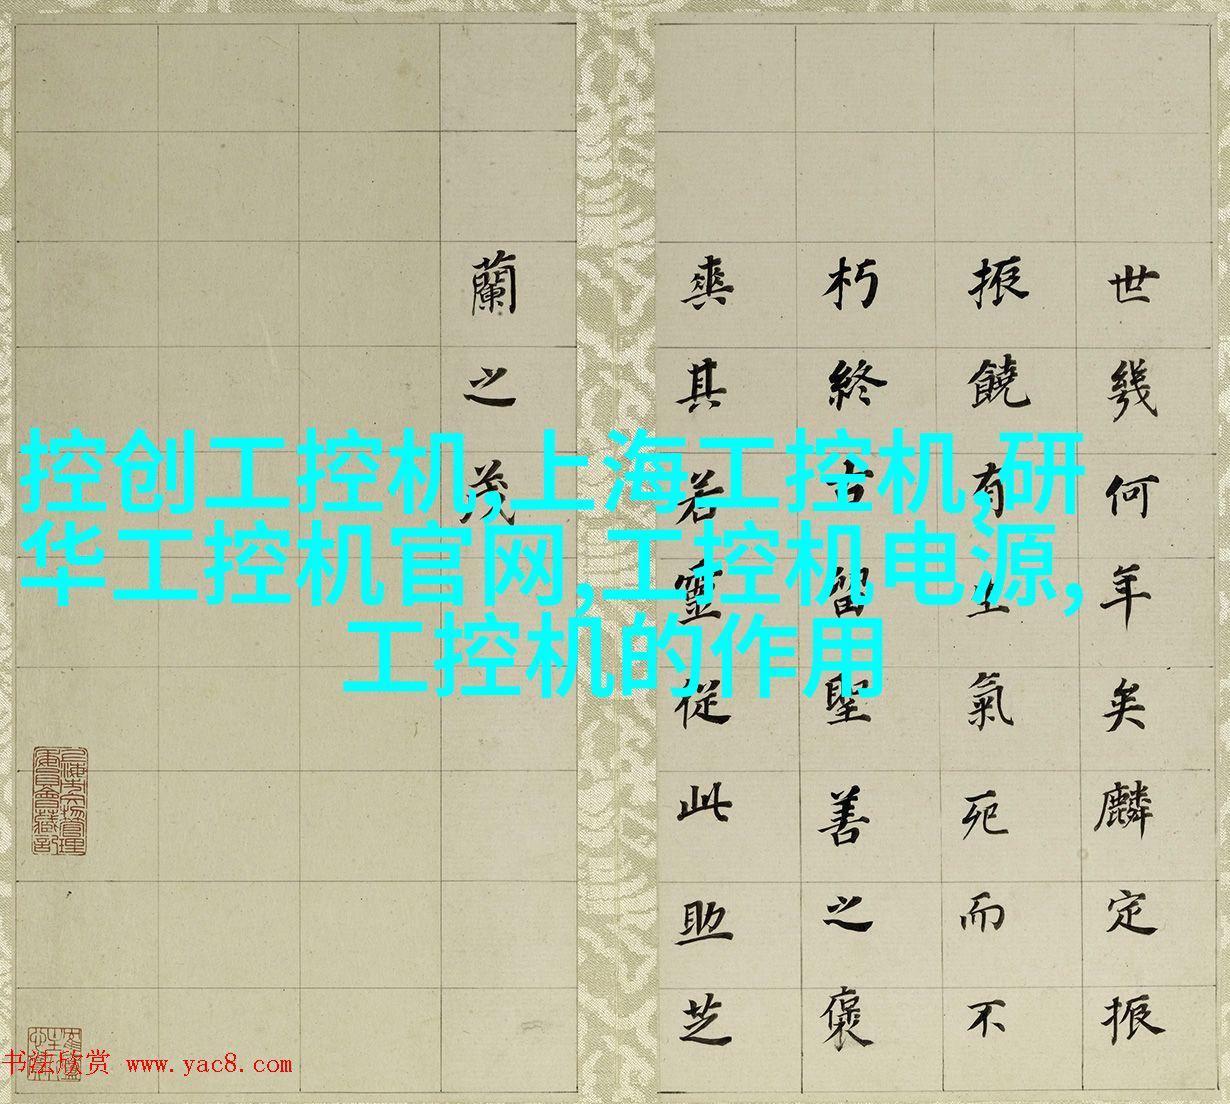 世幾何年矣麟定振
振饒有生氣死而不
朽終古留聖善之褒
爽其若靈從此助芝
蘭之茂
控创工控机,上海工控机,研
华工控机官网,工控机电源,
工控机的作用
书法欣赏 www.yac8.com